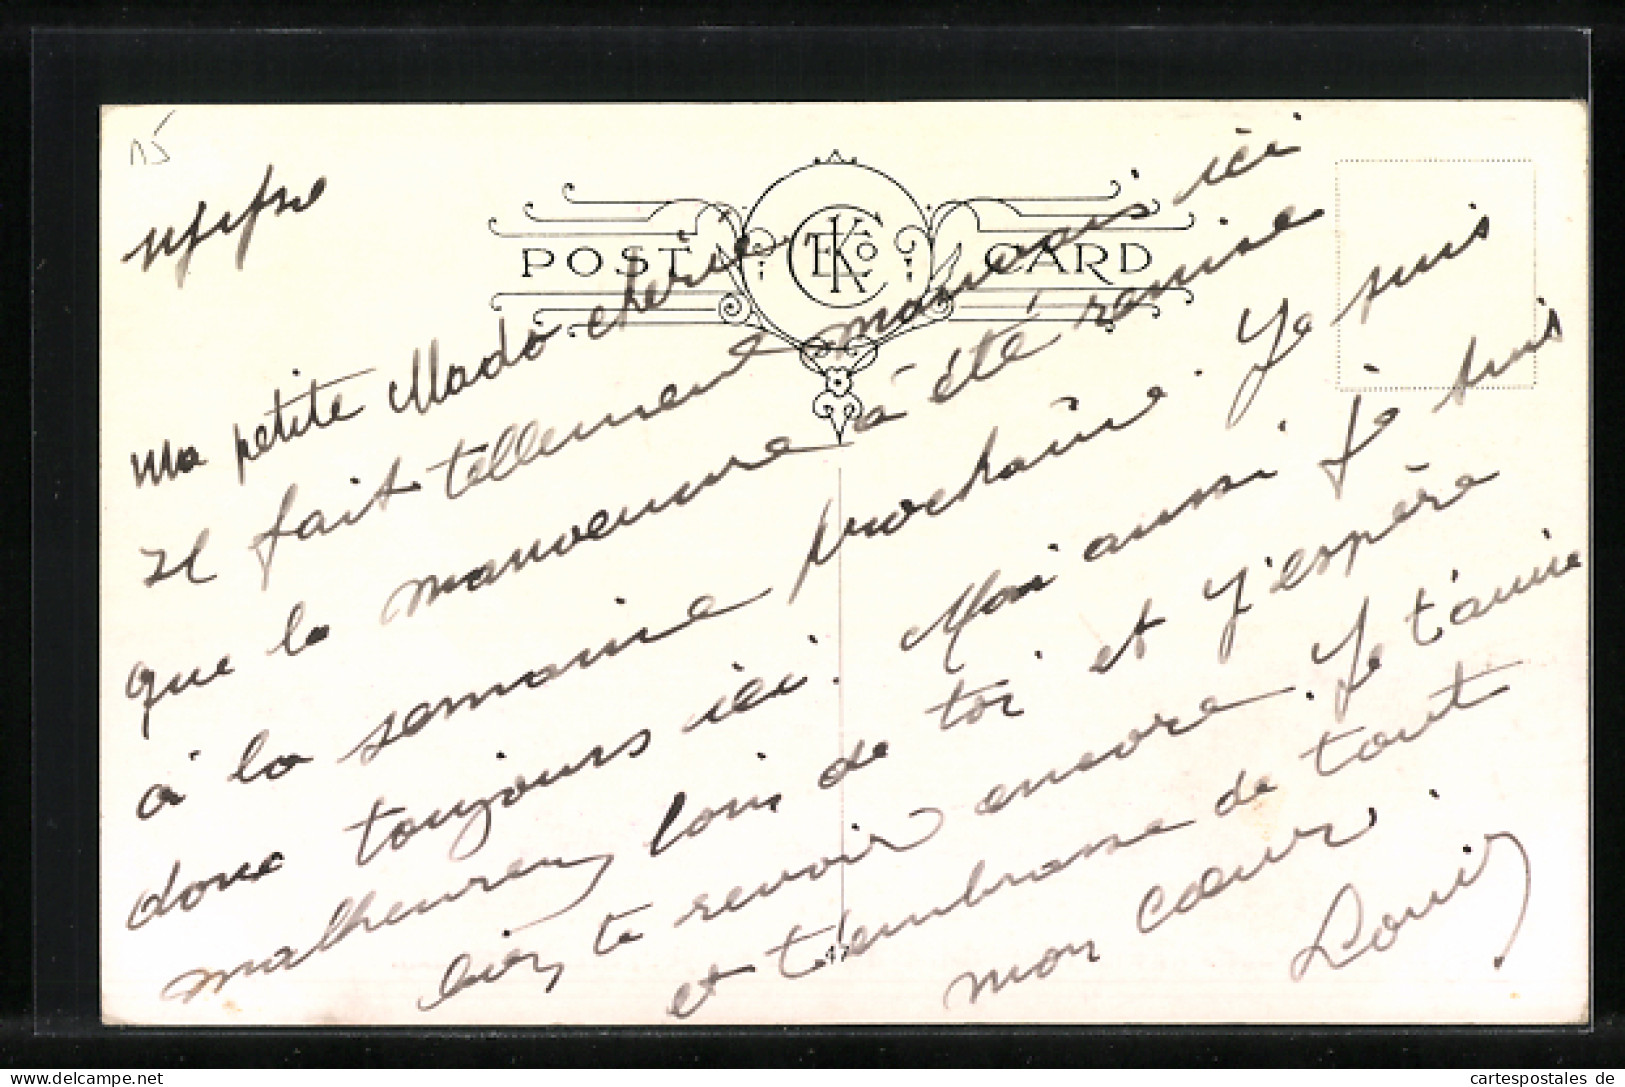 15
POST CARD
CTK Co
Ma petite Mado chérie
Il fait tellement mauvais ici
que la manoeuvre a été remise
à la semaine prochaine. Je suis
donc toujours ici. Moi aussi je suis
malheureux loin de toi et j'espère
bien te revoir encore. Je t'aime
et t'embrasse de tout
mon cœur.
Louis
www.cartespostales.de